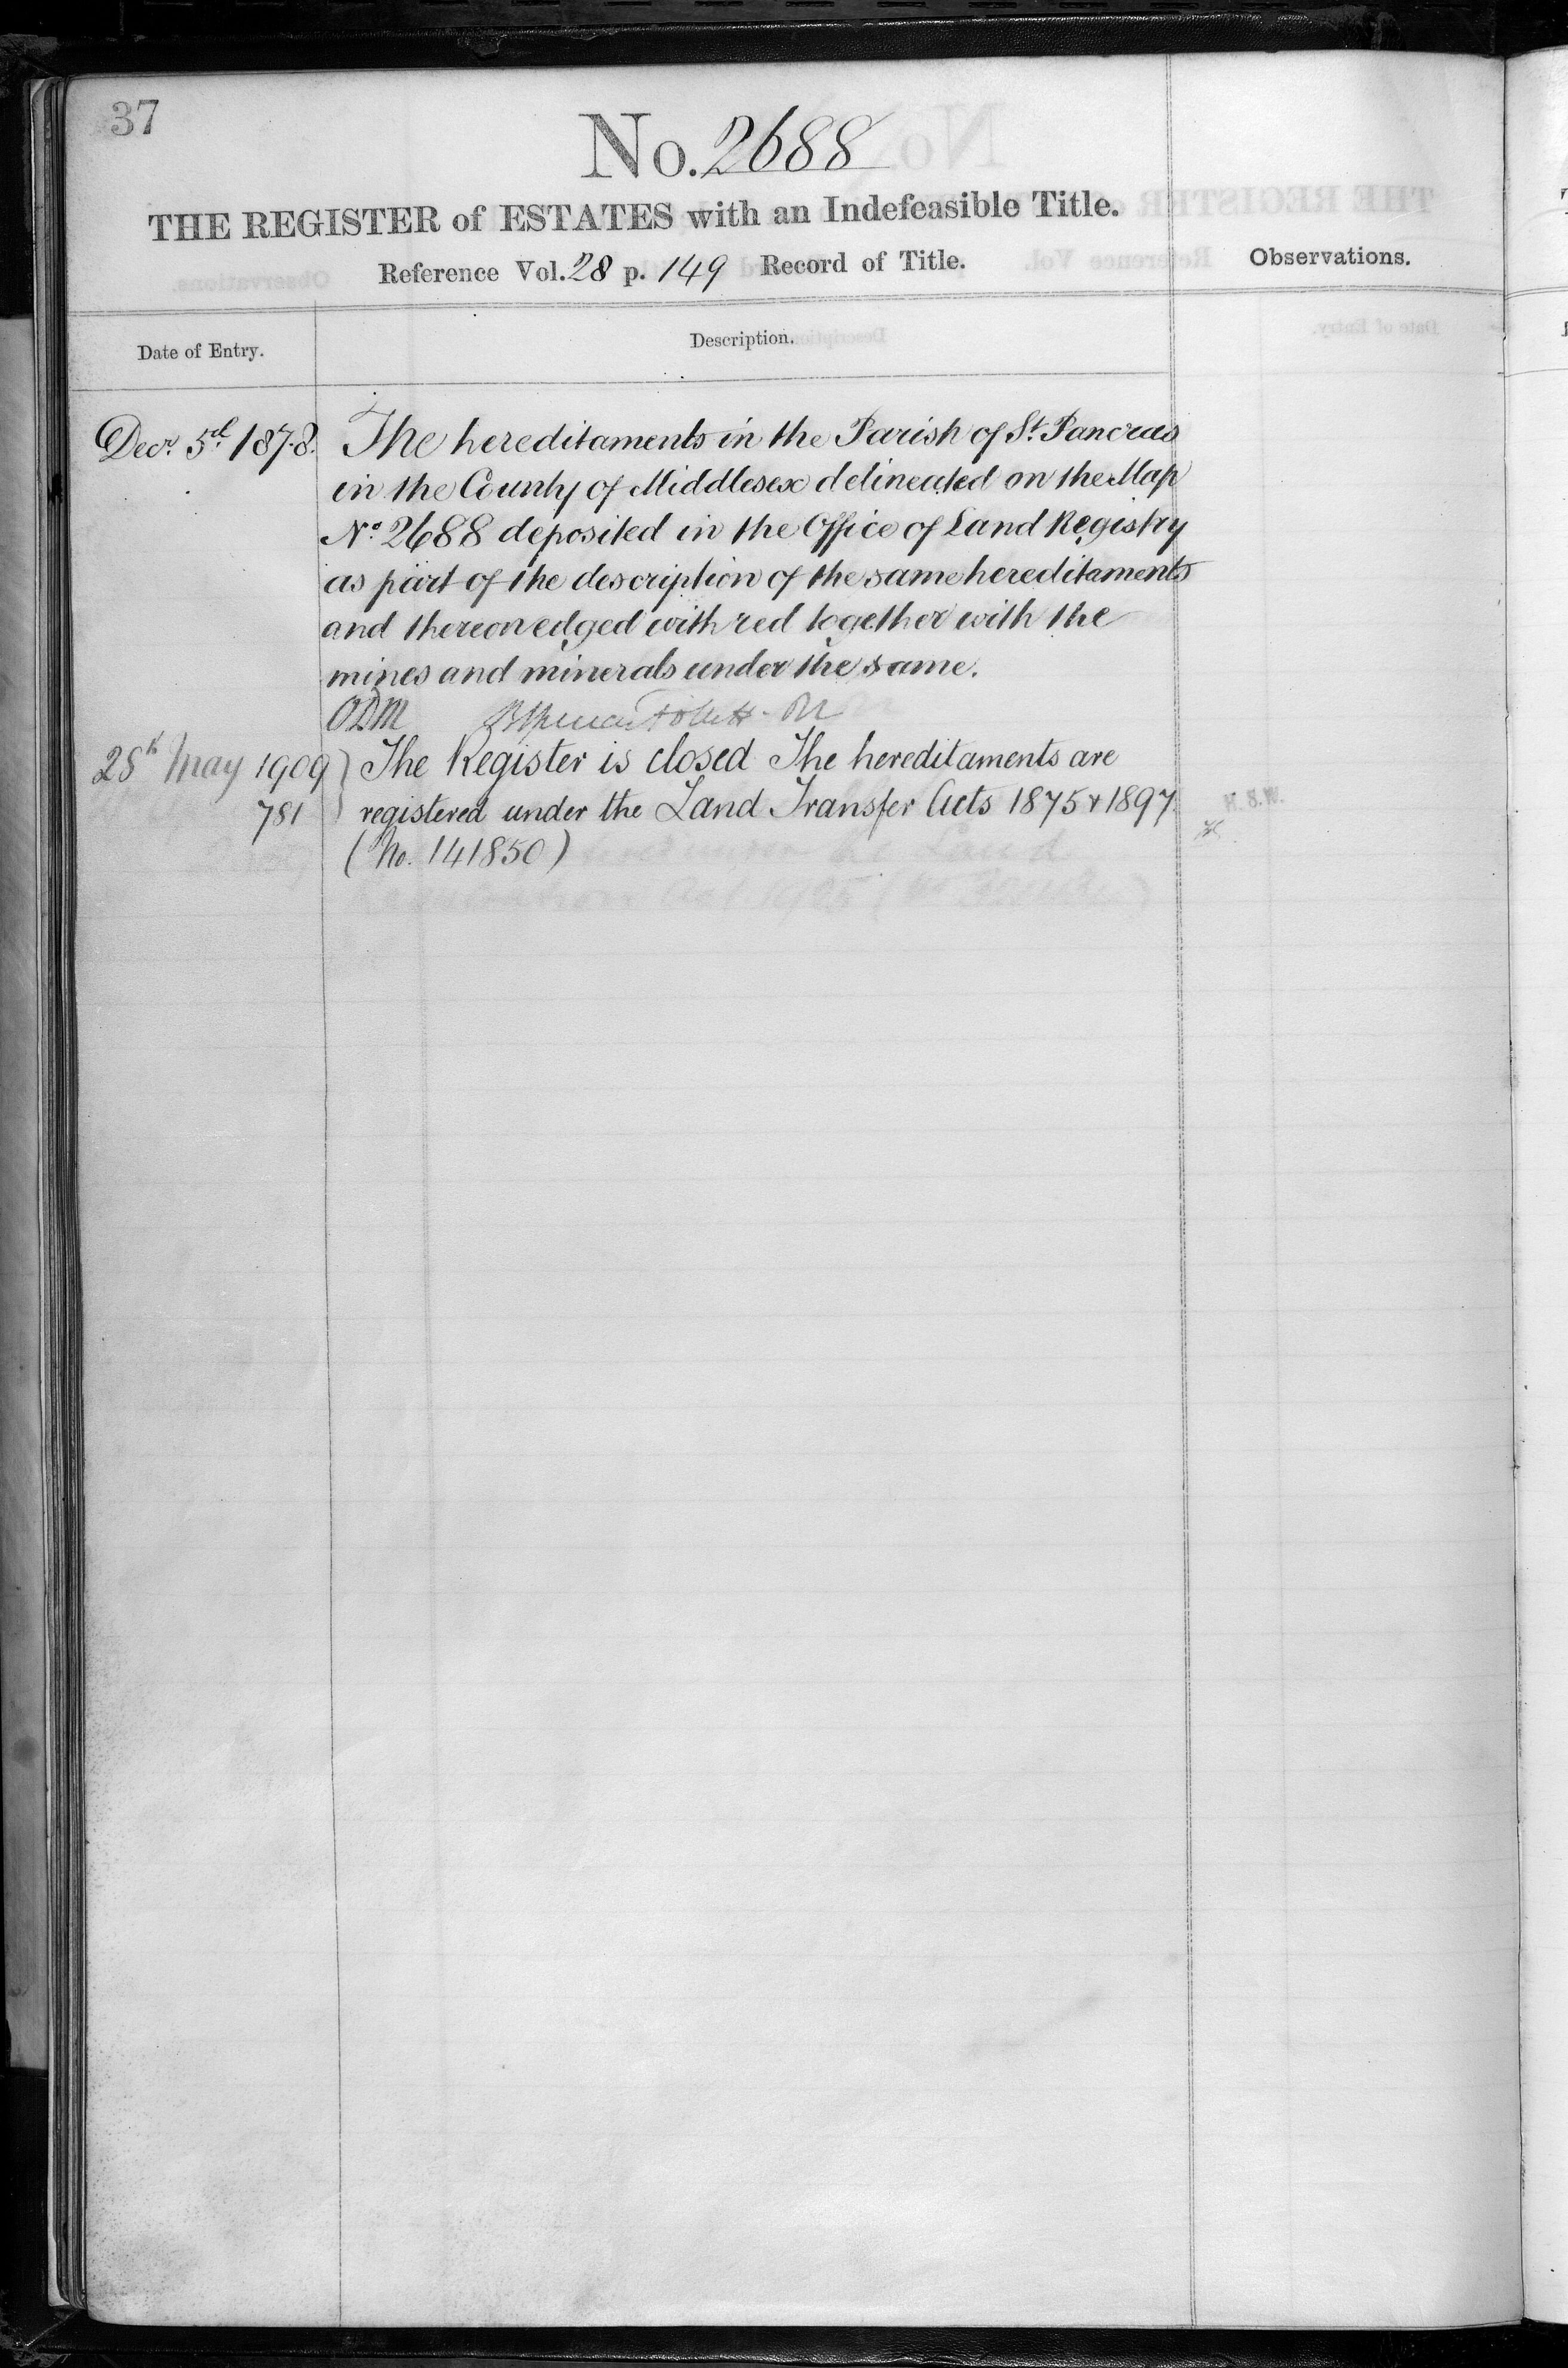 37
No. 2688
THE REGISTER of ESTATES with an Indefeasible Title.
Reference Vol. 28 p. 149 Record of Title.
Observations.
Date of Entry.
Description.
Decr. 5th 1878.
The hereditaments in the Parish of St. Pancras
in the County of Middlesex delineated on the Map
No. 2688 deposited in the Office of Land Registry
as part of the description of the same hereditaments
and thereon edged with red together with the
mines and minerals under the same.
ODM
25th May 1909
781
The Register is closed The hereditaments are
registered under the Land Transfer Acts 1875 & 1897.
(No. 141850)